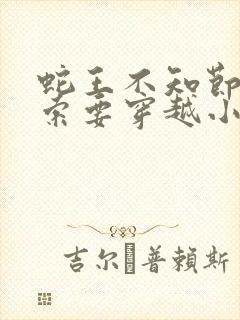 蛇王不知節
索要穿越小
吉尔普賴斯